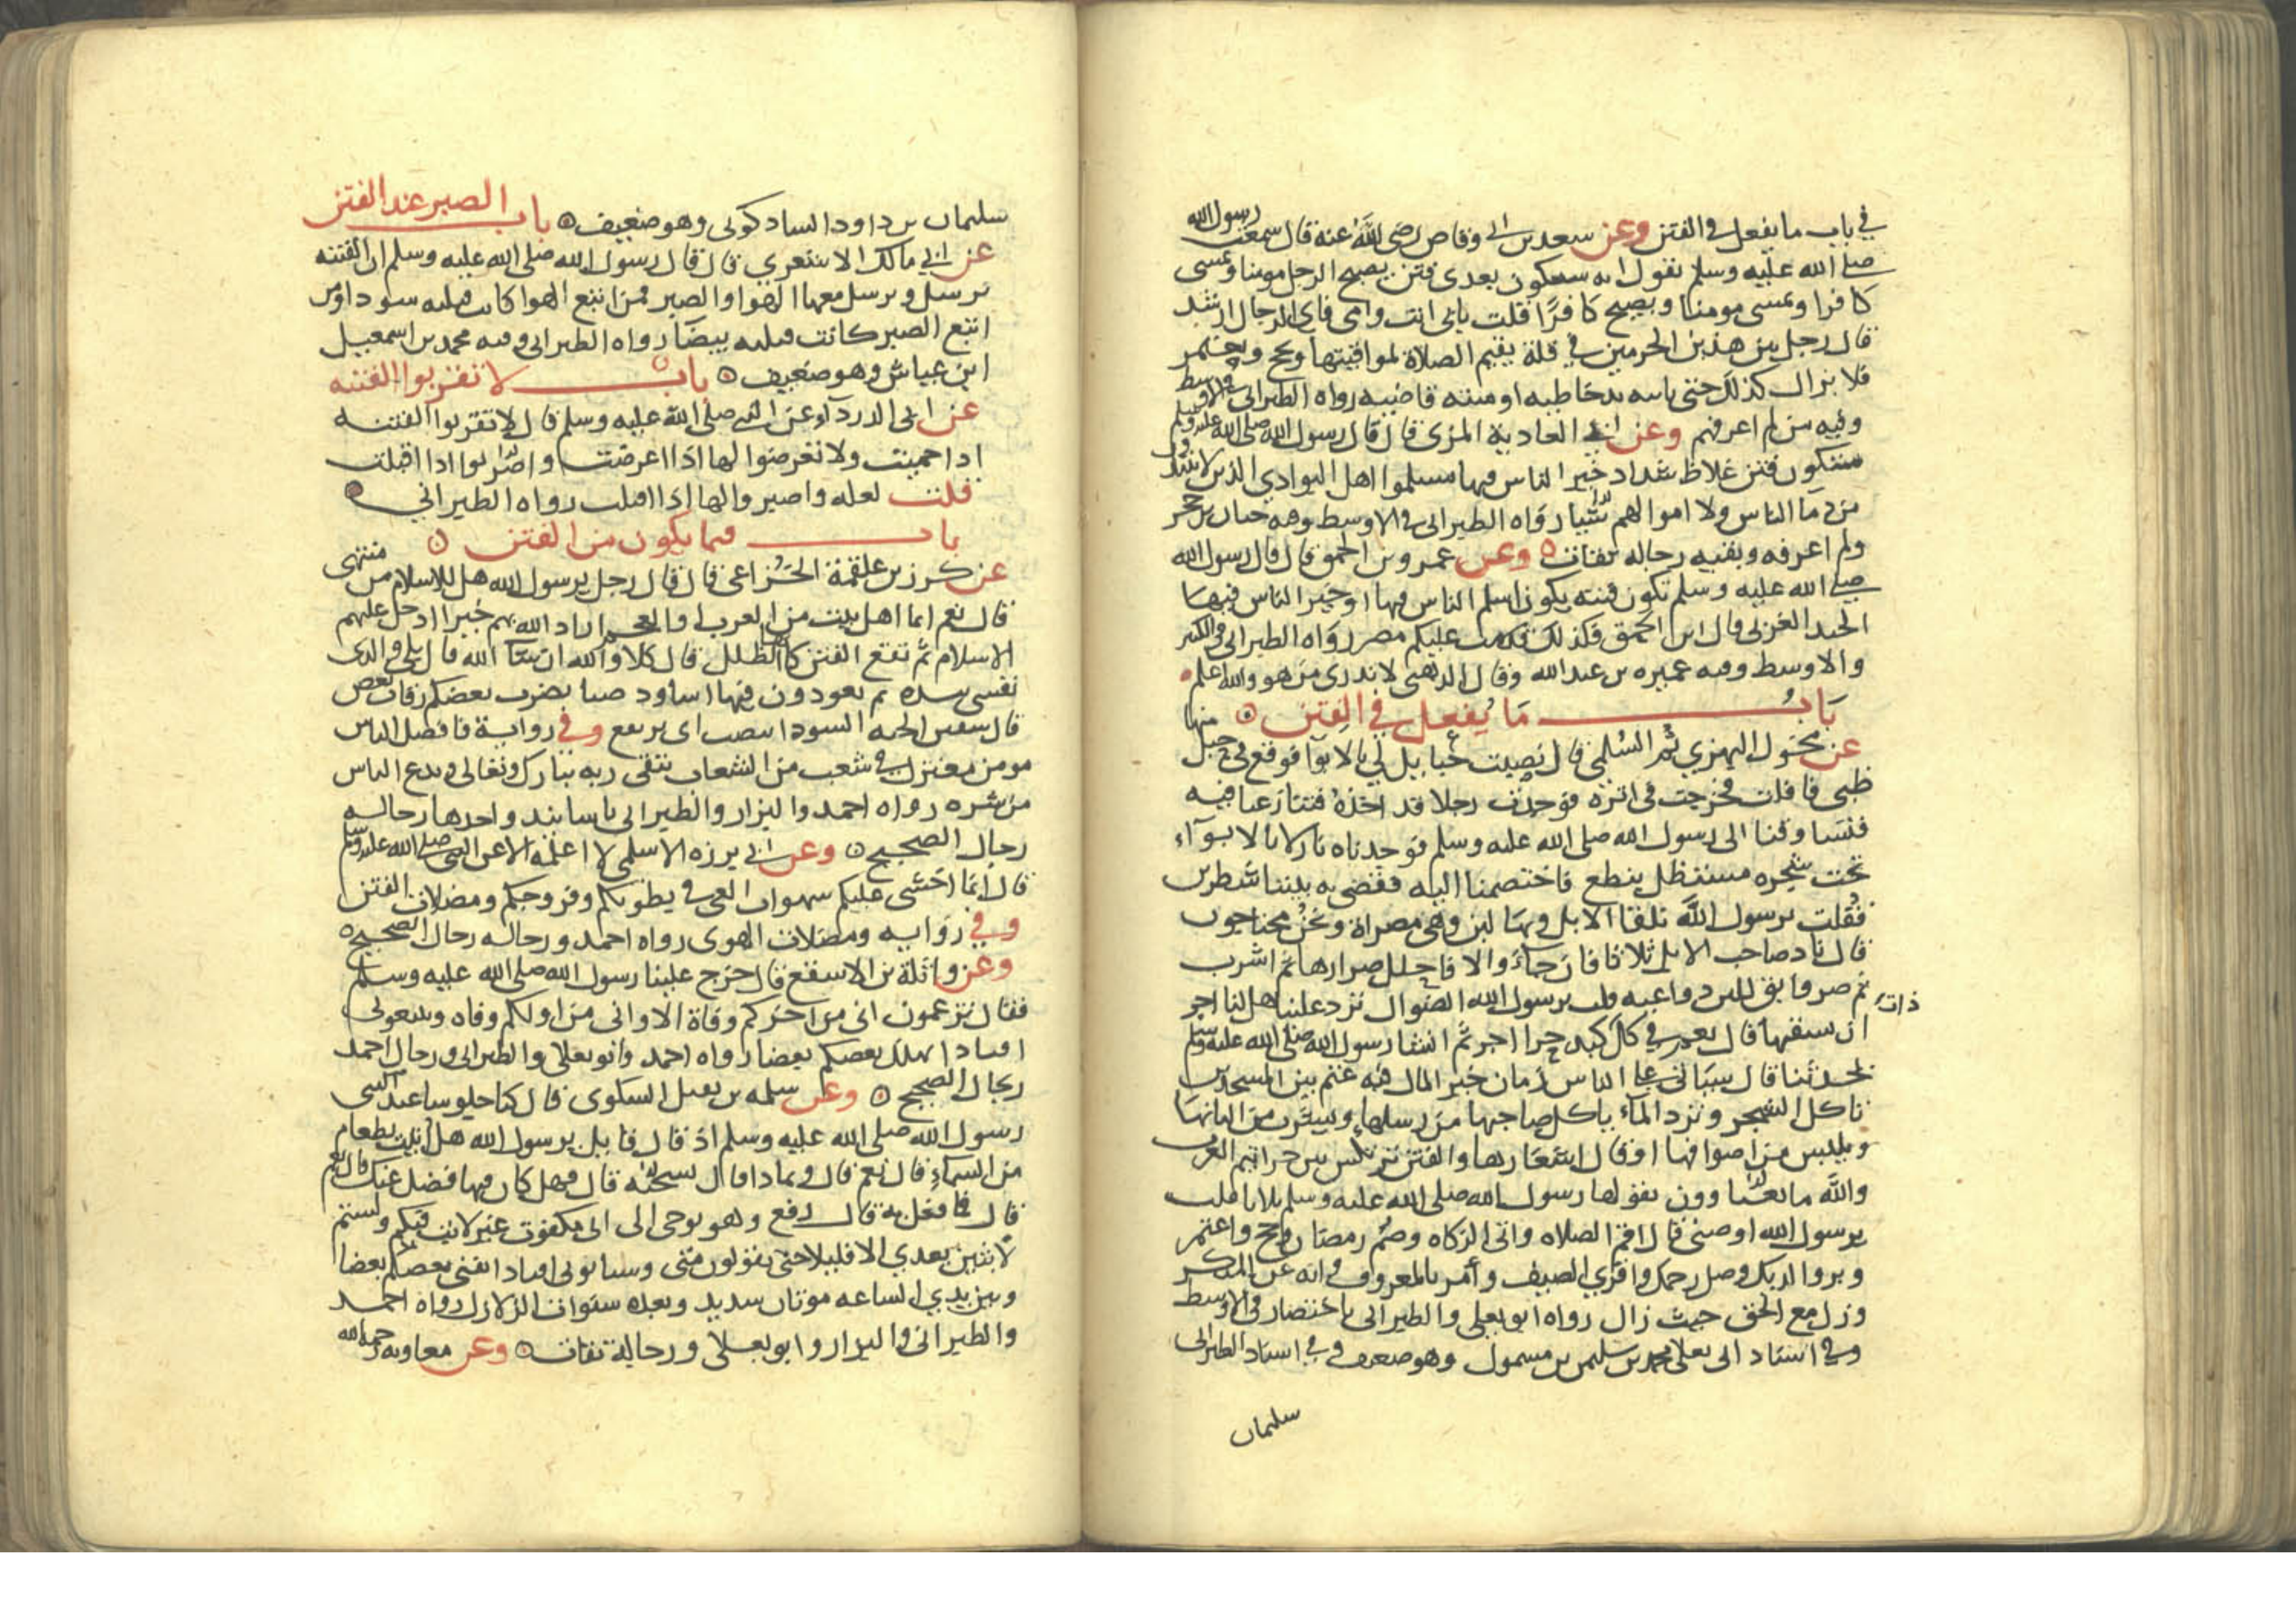 في باب ما يفعل في الفتن وعن سعد بن ابي وقاص رضي الله عنه قال سمعت رسول الله
صلى الله عليه وسلم يقول انه ستكون بعدي فتن يصبح الرجل مومنا ويمسي
كافرا ويمسي مومنا ويصبح كافرا قلت بابي انت وامي فاي الرجال ارشد
قال رجل بين هذين الحرمين في قلة يقيم الصلاة لمواقيتها ويحج ويعتمر
فلا يزال كذلك حتى ياتيه يد خاطيه او منية قاضيه رواه الطبراني في الاوسط
وفيه من لم اعرفهم وعن ابي الغادية المزني قال قال رسول الله صلى الله عليه وسلم
ستكون فتن غلاظ شداد خير الناس فيها مسلموا اهل البوادي الذين لا يتندون
من دما الناس ولا اموالهم شيا رواه الطبراني في الاوسط وفيه حيان بن حجر
ولم اعرفه وبقيه رجاله ثقات وعن عمرو بن الحمق قال قال رسول الله
صلى الله عليه وسلم تكون فتنه يكون اسلم الناس فيها او خير الناس فيها
الجند الغربي قال ابن الحمق فلذلك قدمت عليكم مصر رواه الطبراني في الكبير
والاوسط وفيه عميره بن عبد الله وقال الذهبي لا ندري من هو والله اعلم
باب ما يفعل في الفتن
عن مخول البهزي ثم السلمي قال نصبت حبايل لي بالابوا فوقع في حبل منها
ظبي فافلت فخرجت في اثره فوجدت رجلا قد اخذه فتنازعنا فيه
فتساوقنا الى رسول الله صلى الله عليه وسلم فوجدناه نازلا بالابوآء
تحت شجره مستظل بنطع فاختصمنا اليه فقضى به بيننا شطرين
فقلت يرسول الله تلقانا الابل وبها لبن وهي مصراة ونحن محتاجون
قال ناد صاحب الابل ثلاثا فان جاء والا فاحلل صرارها ثم اشرب
ثم صر وابق للبن دواعيه قلت يرسول الله الضوال ترد علينا هل لنا اجر
ان نسقيها قال نعم في كل ذات كبد حرا اجر ثم انشا رسول الله صلى الله عليه وسلم
يحدثنا قال سياتي على الناس زمان خير المال فيه غنم بين المسجدين
تاكل الشجر وترد الماء ياكل صاحبها من رسلها ويشرب من البانها
ويلبس من اصوافها او قال اشعارها والفتن ترتكس بين جراثيم العرب
والله ما تعبا وون يقولها رسول الله صلى الله عليه وسلم ثلاثا قلت
يرسول الله اوصني قال اقم الصلاه واتي الزكاه وصم رمضان وحج واعتمر
وبر والديك وصل رحمك واقري الضيف وأمر بالمعروف وانه عن المنكر
وزل مع الحق حيث زال رواه ابو يعلى والطبراني باختصار في الاوسط
وفي اسناد ابي يعلى محمد بن سليمن بن مسمول وهو ضعيف وفي اسناد الطبراني
سليمان
سليمان بن داود الشاذكوني وهو ضعيف باب الصبر عند الفتن
عن ابي مالك الاشعري قال قال رسول الله صلى الله عليه وسلم ان الفتنه
ترسل ويرسل معها الهوا والصبر فمن اتبع الهوا كانت قتلته سودا ومن
اتبع الصبر كانت قتلته بيضا رواه الطبراني وفيه محمد بن اسمعيل
ابن عياش وهو ضعيف باب لا تقربوا الفتنه
عن ابي الدردآء عن النبي صلى الله عليه وسلم قال لا تقربوا الفتنه
اذا حميت ولا تعرضوا لها اذا اعرضت واضربوا اذا اقبلت
قلت لعله واصبروا لها اذا اقبلت رواه الطبراني
باب فيما يكون من الفتن
عن كرز بن علقمة الخزاعي قال قال رجل يرسول الله هل للاسلام من منتهى
قال نعم ايما اهل بيت من العرب والعجم اراد الله بهم خيرا ادخل عليهم
الاسلام ثم تقع الفتن كانها الظلل قال كلا والله ان شا الله قال بلى والذي
نفسي بيده ثم يعودون فيها اساود صبا يضرب بعضكم رقاب بعض
قال سفين الحيه السودا تنصب اي ترتفع وفي رواية فافضل الناس
مومن معتزل في شعب من الشعاب يتقي ربه تبارك وتعالى ويدع الناس
من شره رواه احمد والبزار والطبراني باسانيد واحدها رجاله
رجال الصحيح وعن ابي برزه الاسلمي لا اعلمه الا عن النبي صلى الله عليه وسلم
قال انما اخشى عليكم شهوات الغي في بطونكم وفروجكم ومضلات الفتن
وفي روايه ومضلات الهوى رواه احمد ورجاله رجال الصحيح
وعن واثلة بن الاسقع قال خرج علينا رسول الله صلى الله عليه وسلم
فقال تزعمون اني من اخركم وفاة الا واني من اولكم وفاه وتتبعوني
افنادا يهلك بعضكم بعضا رواه احمد وابو يعلى والطبراني ورجال احمد
رجال الصحيح وعن سلمه بن نفيل السكوني قال كنا جلوسا عند النبي
رسول الله صلى الله عليه وسلم اذ قال قايل يرسول الله هل اتيت بطعام
من السماء قال نعم قال وبماذا قال بسخنه قال فهل كان فيها فضل عنك قال نعم
قال فما فعل به قال رفع وهو يوحى الى اني مكفوت غير لابث فيكم ولستم
لابثين بعدي الا قليلا حتى تقولون متى وستاتوني افنادا يفني بعضكم بعضا
وبين يدي الساعه موتان شديد وبعده سنوات الزلازل رواه احمد
والطبراني والبزار وابو يعلى ورجاله ثقات وعن معاويه رحمه الله